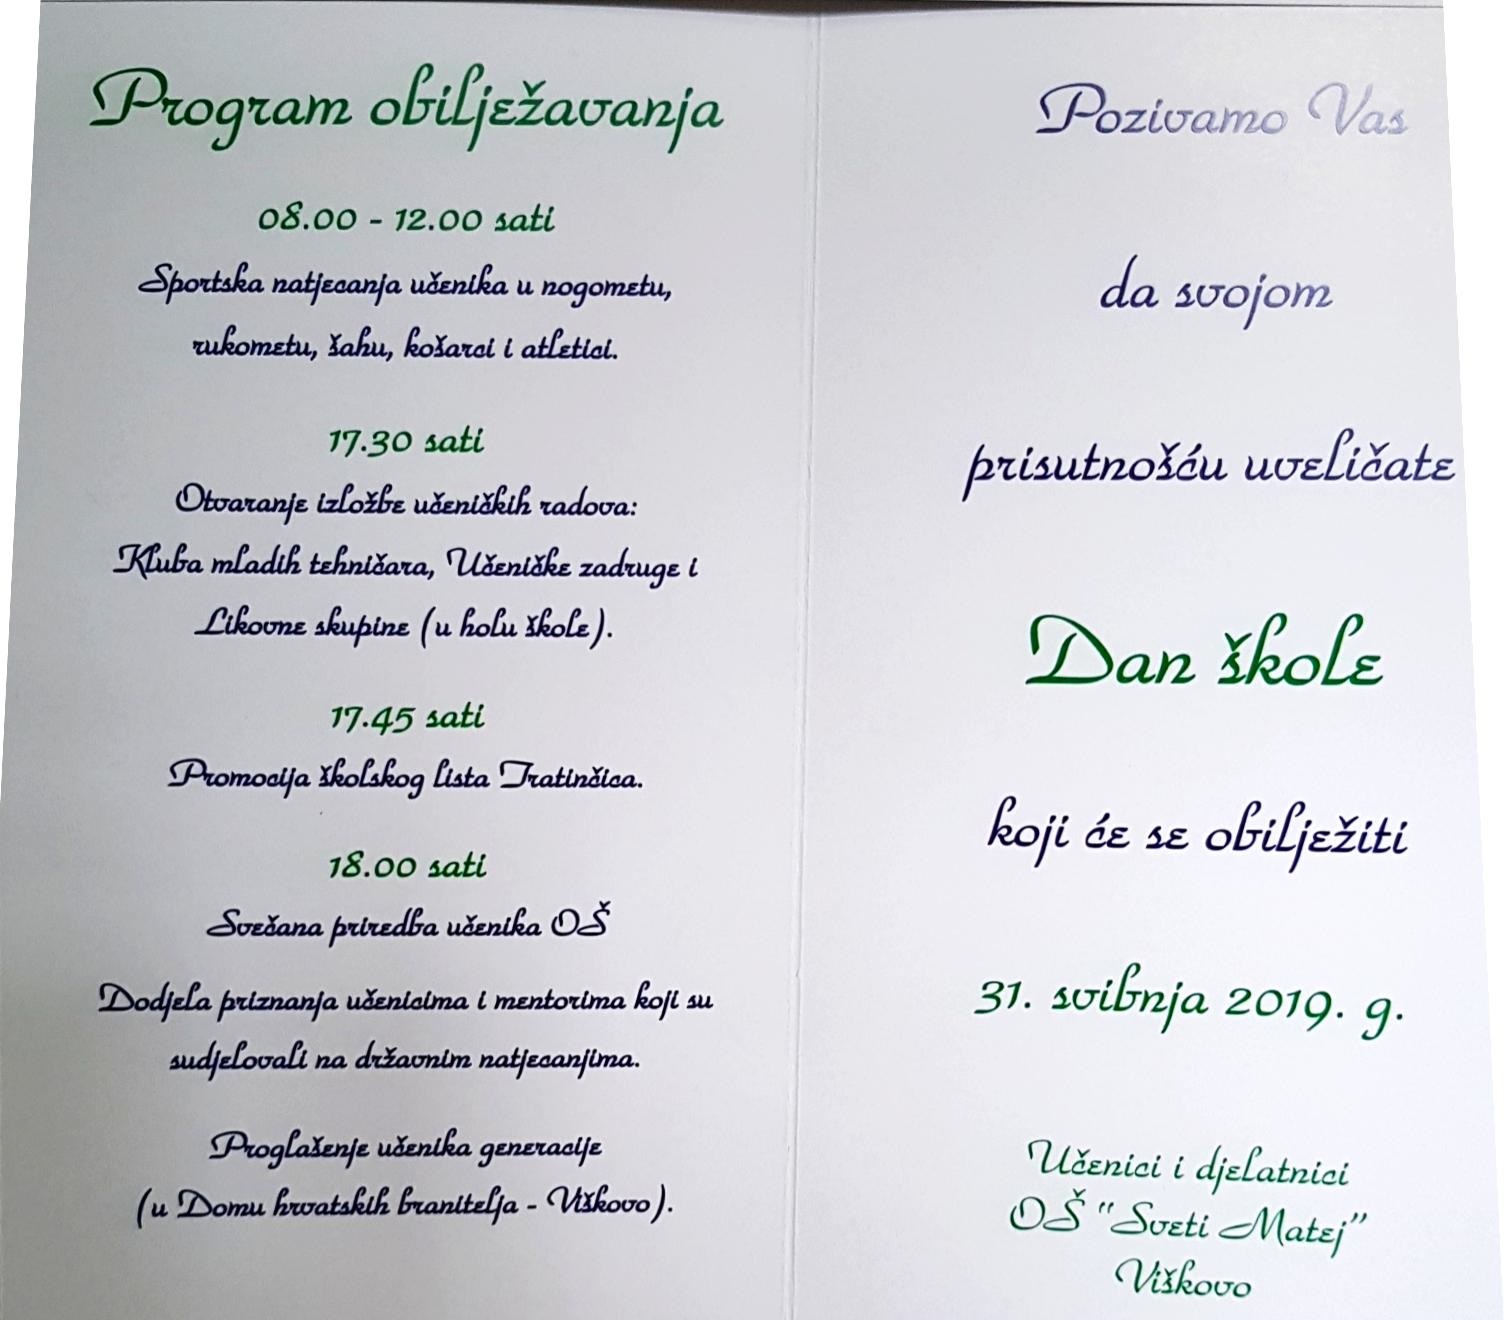 Program obilježavanja
08.00 - 12.00 sati
Sportska natjecanja učenika u nogometu,
rukometu, šahu, košarci i atletici.
17.30 sati
Otvaranje izložbe učeničkih radova:
Kluba mladih tehničara, Učeničke zadruge i
Likovne skupine (u holu škole).
17.45 sati
Promocija školskog lista Tratinčica.
18.00 sati
Svečana priredba učenika OŠ
Dodjela priznanja učenicima i mentorima koji su
sudjelovali na državnim natjecanjima.
Proglašenje učenika generacije
(u Domu hrvatskih branitelja - Viškovo).
Pozivamo Vas
da svojom
prisutnošću uveličate
Dan škole
koji će se obilježiti
31. svibnja 2019. g.
Učenici i djelatnici
OŠ "Sveti Matej"
Viškovo